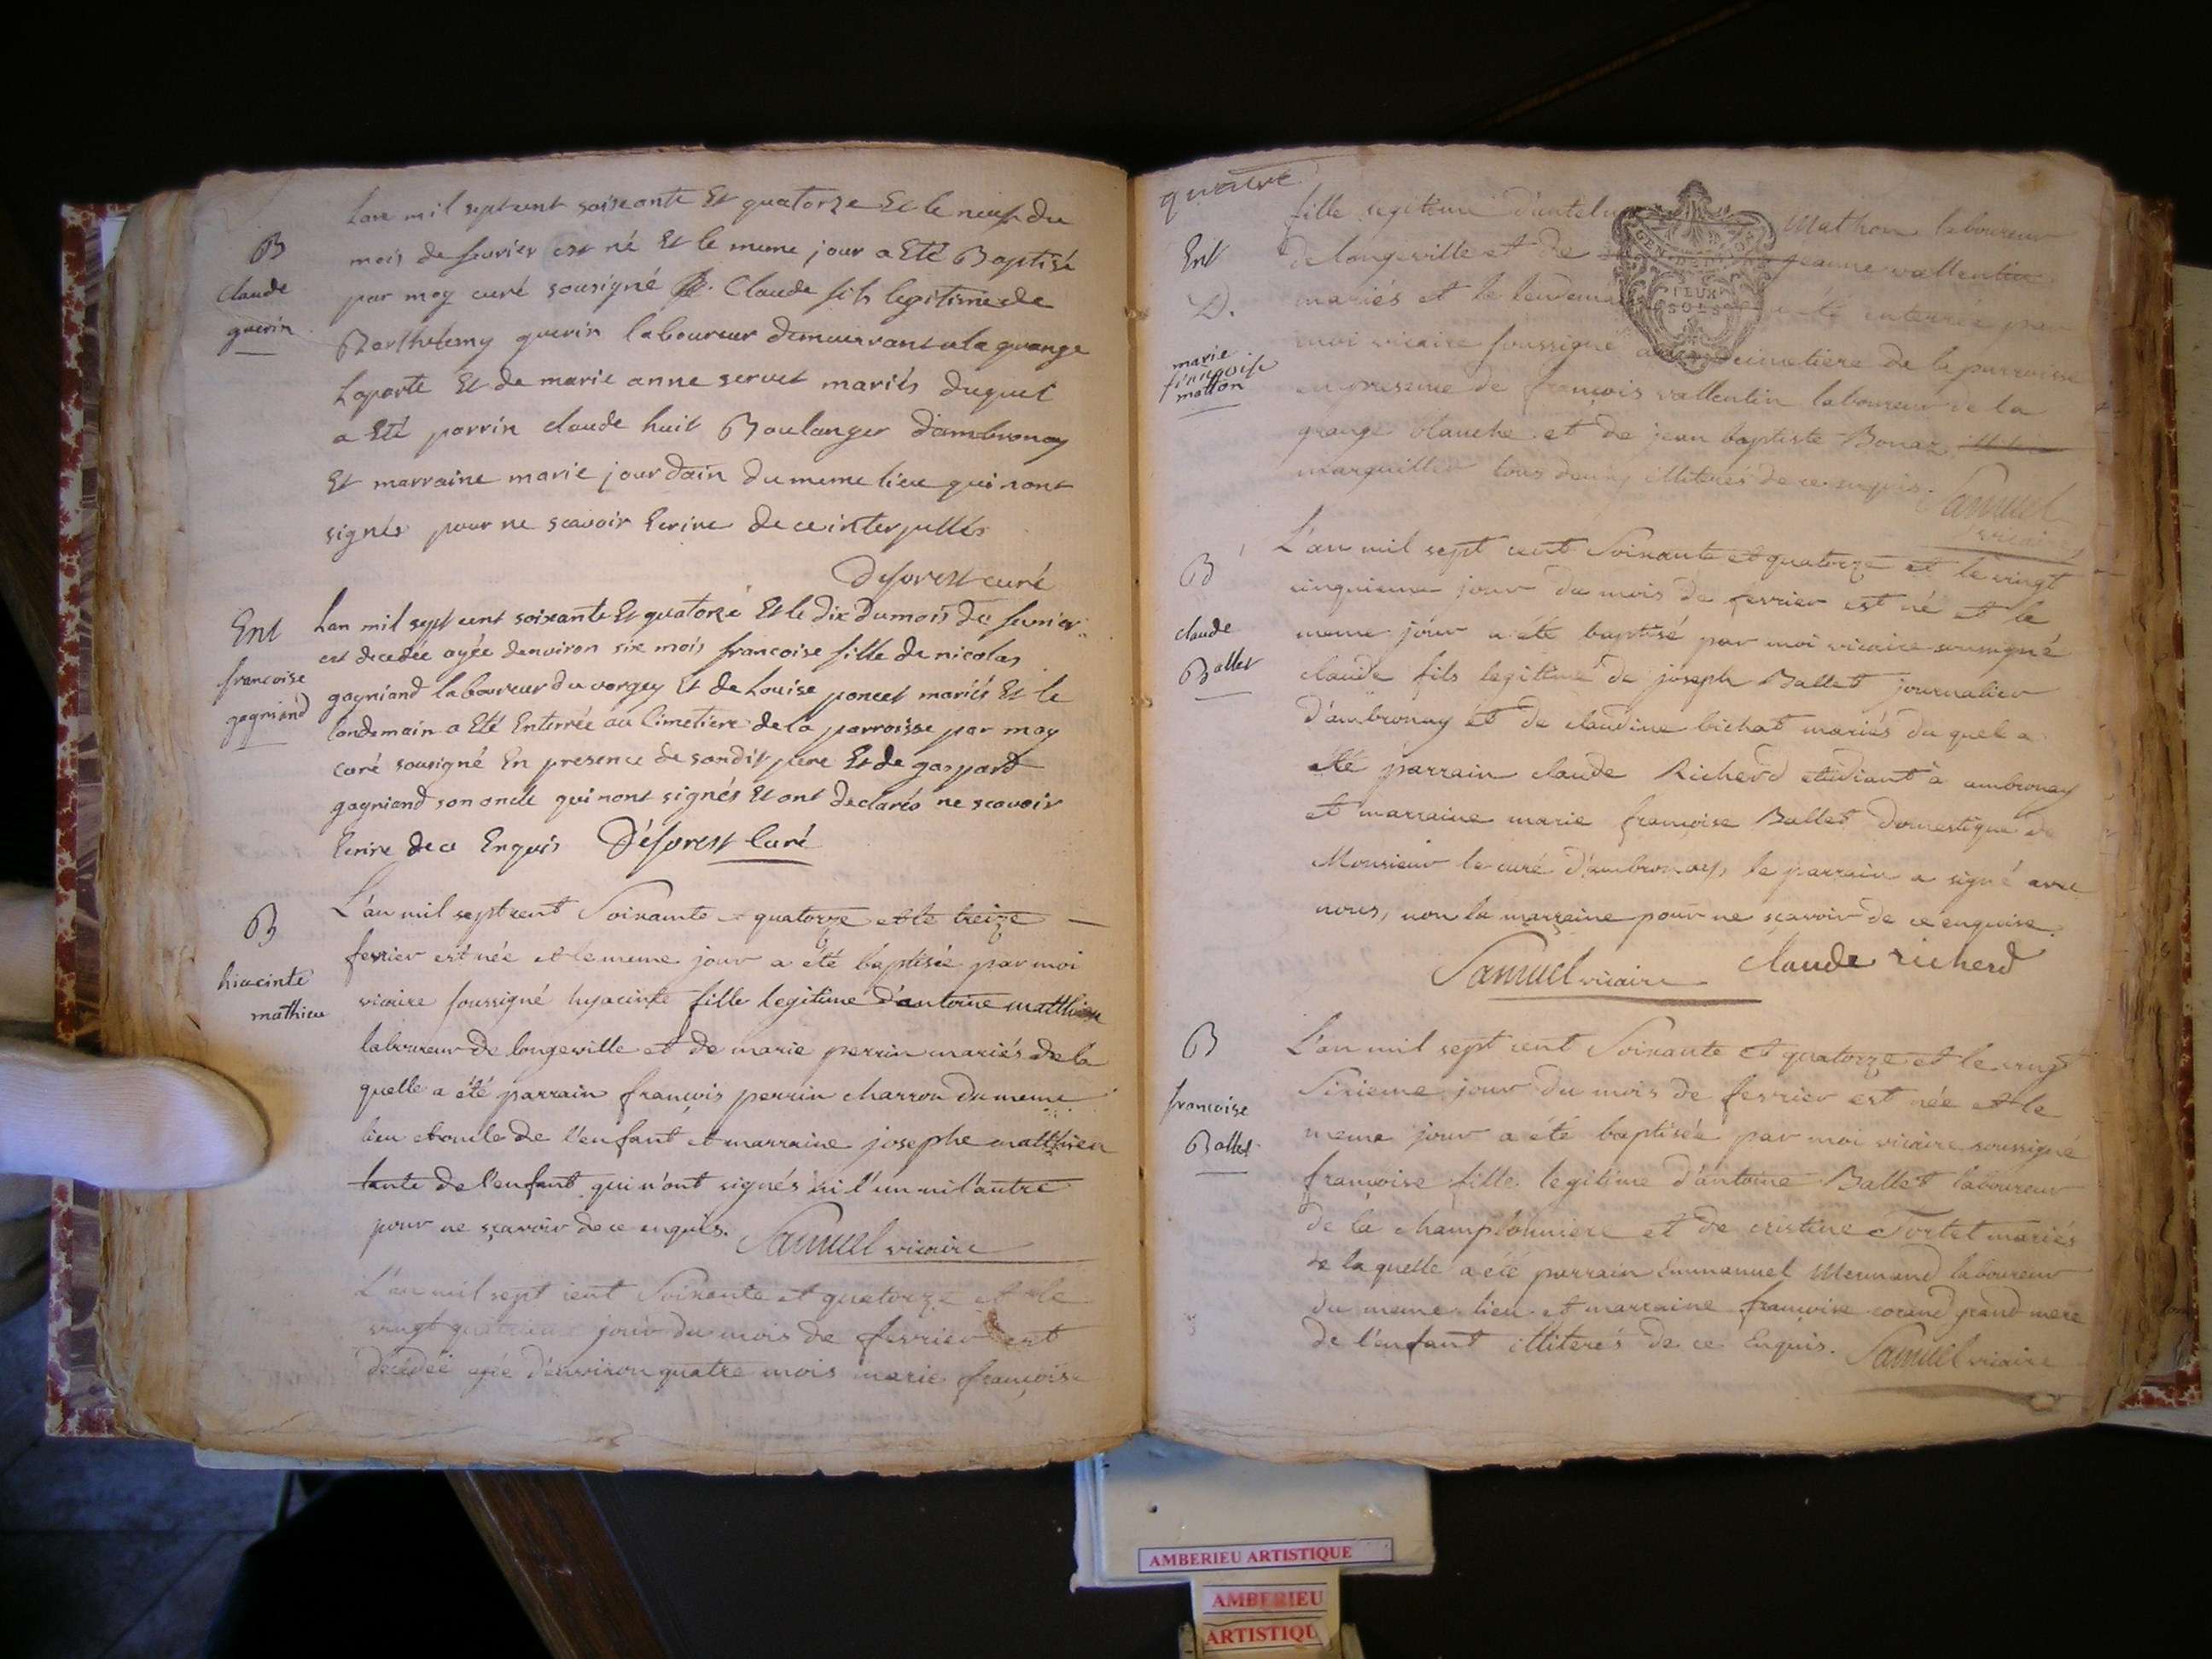 Lan mil sept cent soixante Et quatorze Et le neuf du
mois de fevrier est né Et le meme jour a Eté Baptisé
par moy curé sousigné Claude fils legitime de
Barthelemy guerin laboureur demeurrant a la grange
Laporte Et de marie anne servet mariés duquel
a Eté parrin claude huit Boulanger d'ambronay
Et marraine marie jourdain du meme lieu qui nont
signés pour ne scavoir Ecrire de ce interpellés
Deforest curé
B
claude
guerin
Lan mil sept cent soixante Et quatorze Et le dix du mois de fevrier
est decedée agée denviron six mois francoise fille de nicolas
gagniand laboureur du vorgey Et de Louise poncet mariés Et le
landemain a Eté Enterrée au Cimetiere de la parroisse par moy
curé sousigné En presence de sondit pere Et de gaspard
gagniand son oncle qui nont signés Et ont declarés ne scavoir
Ecrire de ce Enquis Déforest Curé
Ent
francoise
gagniand
L'an mil sept cent Soixante et quatorze et le treize
fevrier est née et le meme jour a été baptisée par moi
vicaire soussigné hyacinte fille legitime d'antoine matthieu
laboureur de longeville et de marie perrin mariés de la
quelle a été parrain françois perrin charron du meme
lieu et oncle de l'enfant et marraine josephe matthieu
tante de l'enfant qui n'ont signés ni l'un ni l'autre
pour ne sçavoir de ce enquis. Samuel vicaire
B
hiacinte
mathieu
L'an mil sept cent Soixante et quatorze et le
vingt quatrieme jour du mois de fevrier est
décédée agée d'environ quatre mois marie françoise
quatre
fille legitime d'antelme Mathon laboureur
de longeville et de jeanne vallentin
mariés et le lendemain a été enterrée par
moi vicaire soussigné au cimetiere de la parroisse
en presence de françois vallentin laboureur de la
grange blanche et de jean baptiste Bonaz
marguillier tous deux illiterés de ce enquis. Samuel
vicaire
GEN
DEUX
SOLS
Ent
D.
marie
françoise
matton
L'an mil sept cent Soixante et quatorze et le vingt
cinquieme jour du mois de fevrier est né et le
meme jour a été baptisé par moi vicaire sousigné
claude fils legitime de joseph Ballet journalier
d'ambronay et de claudine bichat mariés du quel a
été parrain claude Richerd etudiant à ambronay
et marraine marie françoise Ballet domestique de
Monsieur le curé d'ambronay, le parrain a signé avec
nous, non la marraine pour ne sçavoir de ce enquise.
Samuel vicaire claude richerd
B
claude
Ballet
L'an mil sept cent Soixante et quatorze et le vingt
Sixieme jour du mois de fevrier est née et le
meme jour a été baptisée par moi vicaire soussigné
françoise fille legitime d'antoine Ballet laboureur
de la championniere et de cristine Tortet mariés
de la quelle a été parrain Emmanuel Mermand laboureur
du meme lieu et marraine françoise corand grand mere
de l'enfant illiterés de ce Enquis. Samuel vicaire
B
francoise
Ballet
AMBERIEU ARTISTIQUE
AMBERIEU
ARTISTIQU